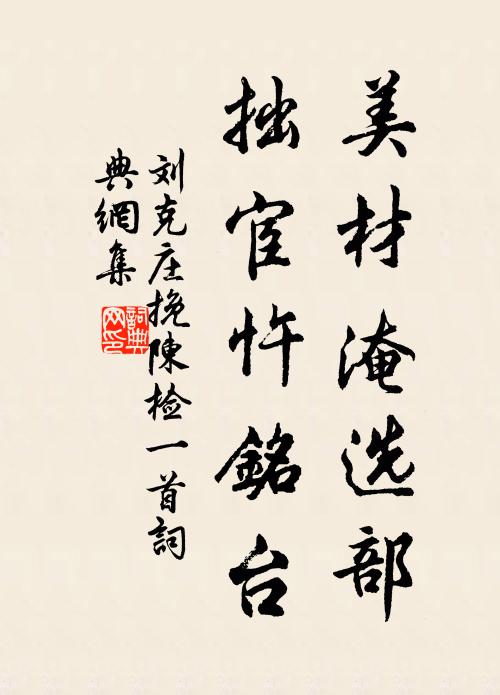 美材淹选部
拙宦忤銘台
刘克庄挽陳检一首詞
典網集
詞典网印